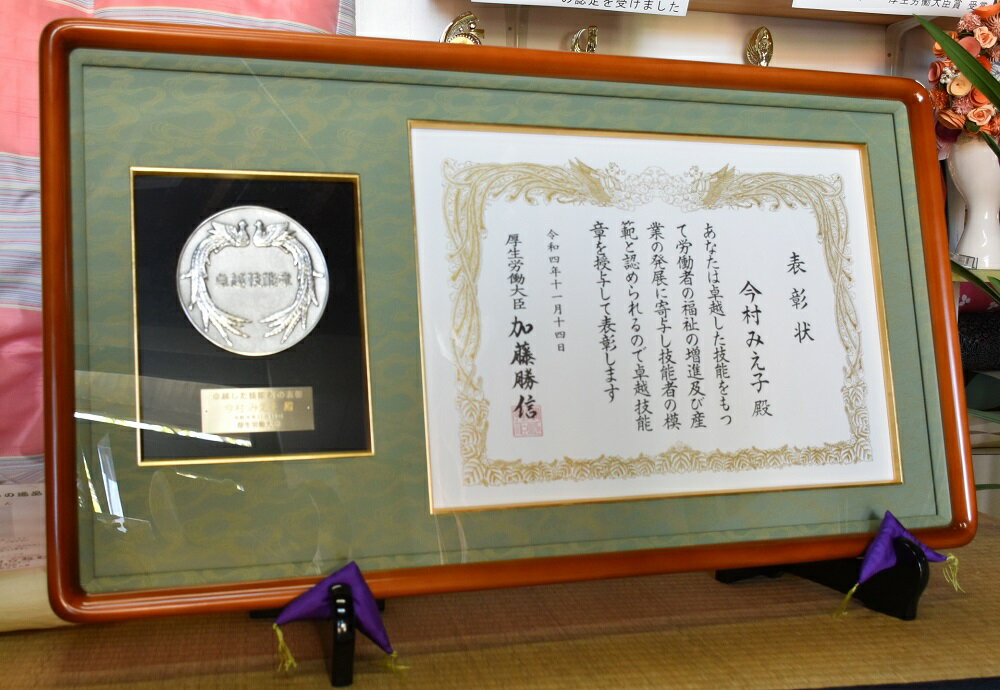 の認定を受けました
厚生労働大臣賞 受賞
表彰状
今村みえ子 殿
あなたは卓越した技能をもっ
て労働者の福祉の増進及び産
業の発展に寄与し技能者の模
範と認められるので卓越技能
章を授与して表彰します
令和四年十一月十四日
厚生労働大臣 加藤勝信
卓越技能章
卓越した技能者の表彰
今村みえ子 殿
厚生労働大臣